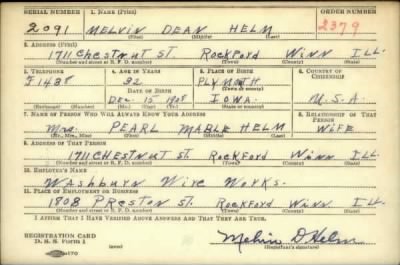 SERIAL NUMBER 1. NAME (Print) ORDER NUMBER
2091 MELVIN DEAN HELM 2379
(First) (Middle) (Last)
2. ADDRESS (Print)
1711 Chestnut St. Rockford Winn Ill.
(Number and street or R. F. D. number) (Town) (County) (State)
3. TELEPHONE 4. AGE IN YEARS 5. PLACE OF BIRTH 6. COUNTRY OF CITIZENSHIP
F1485 32 PLYMOTH
DATE OF BIRTH (Town or county)
DEC. 15 1908 IOWA. U.S.A
(Exchange) (Number) (Mo.) (Day) (Yr.) (State or country)
7. NAME OF PERSON WHO WILL ALWAYS KNOW YOUR ADDRESS 8. RELATIONSHIP OF THAT PERSON
Mrs. PEARL MABLE HELM WIFE
(Mr., Mrs., Miss) (First) (Middle) (Last)
9. ADDRESS OF THAT PERSON
1711 CHESTNUT St. Rockford Winn ILL.
(Number and street or R. F. D. number) (Town) (County) (State)
10. EMPLOYER'S NAME
Washburn Wire Works.
11. PLACE OF EMPLOYMENT OR BUSINESS
1808 Preston St Rockford Winn. Ill
(Number and street or R. F. D. number) (Town) (County) (State)
I AFFIRM THAT I HAVE VERIFIED ABOVE ANSWERS AND THAT THEY ARE TRUE.
REGISTRATION CARD
D. S. S. Form 1 (over) Melvin D Helm
(Registrant's signature)